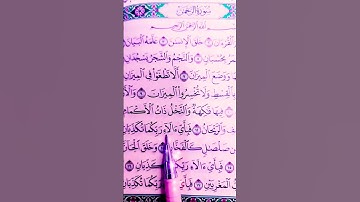 سُورَةُ الرَّحْمَٰن
اللَّهِ الرَّحْمَٰنِ الرَّحِيمِ
الْقُرْءَانَ ٢ خَلَقَ الْإِنسَٰنَ ٣ عَلَّمَهُ الْبَيَانَ
بِحُسْبَانٍ ٥ وَالنَّجْمُ وَالشَّجَرُ يَسْجُدَانِ
وَوَضَعَ الْمِيزَانَ ٧ أَلَّا تَطْغَوْا فِي الْمِيزَانِ
بِالْقِسْطِ وَلَا تُخْسِرُوا الْمِيزَانَ ٩ وَالْأَ
فِيهَا فَٰكِهَةٌ وَالنَّخْلُ ذَاتُ الْأَكْمَامِ
وَالرَّيْحَانُ ١٢ فَبِأَيِّ ءَالَآءِ رَبِّكُمَا تُكَذِّبَانِ
صَلْصَٰلٍ كَالْفَخَّارِ ١٤ وَخَلَقَ الْجَانَّ
فَبِأَيِّ ءَالَآءِ رَبِّكُمَا تُكَذِّبَانِ
الْمَغْرِبَيْنِ ١٧ فَبِأَيِّ ءَالَآءِ رَبِّكُمَا تُكَذِّبَانِ